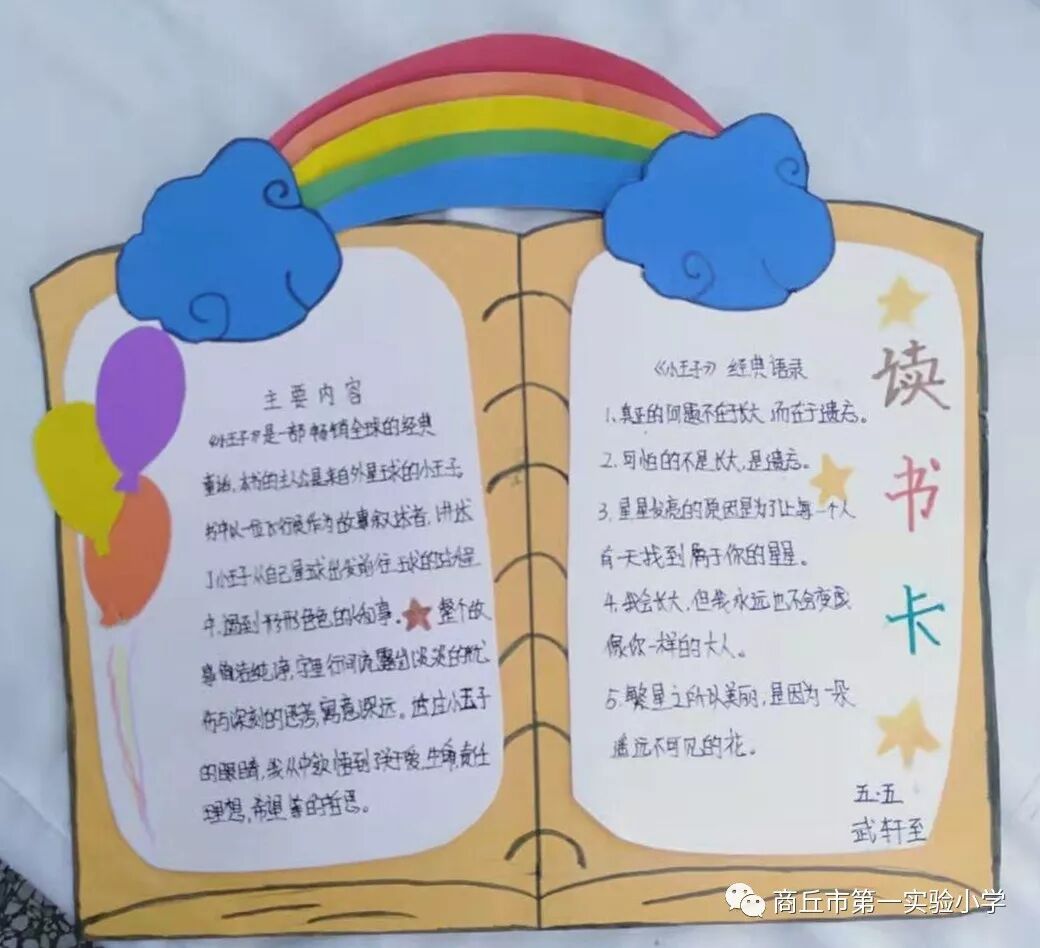 主要内容
《小王子》是一部畅销全球的经典
童话,本书的主人公是来自外星球的小王子。
书中以一位飞行员作为故事叙述者,讲述
了小王子从自己星球出发前往 球的
中,遇到形形色色的 事。整个故
事 纯净,字里行间流露出淡淡的忧
伤与深刻的 ,寓意深远。 小王子
的眼睛,我从中 悟到关于爱,生命,责任
理想,希望 的哲思。
《小王子》经典语录
1.真正的问题不在于长大,而在于遗忘。
2.可怕的不是长大,是遗忘。
3.星星发亮的原因是为了让每一个人
有一天找到属于你的星星。
4.我会长大,但我永远也不会变成
像你一样的大人。
5.繁星之所以美丽,是因为一朵
遥远不可见的花。
读书卡
五·五
武轩至
商丘市第一实验小学